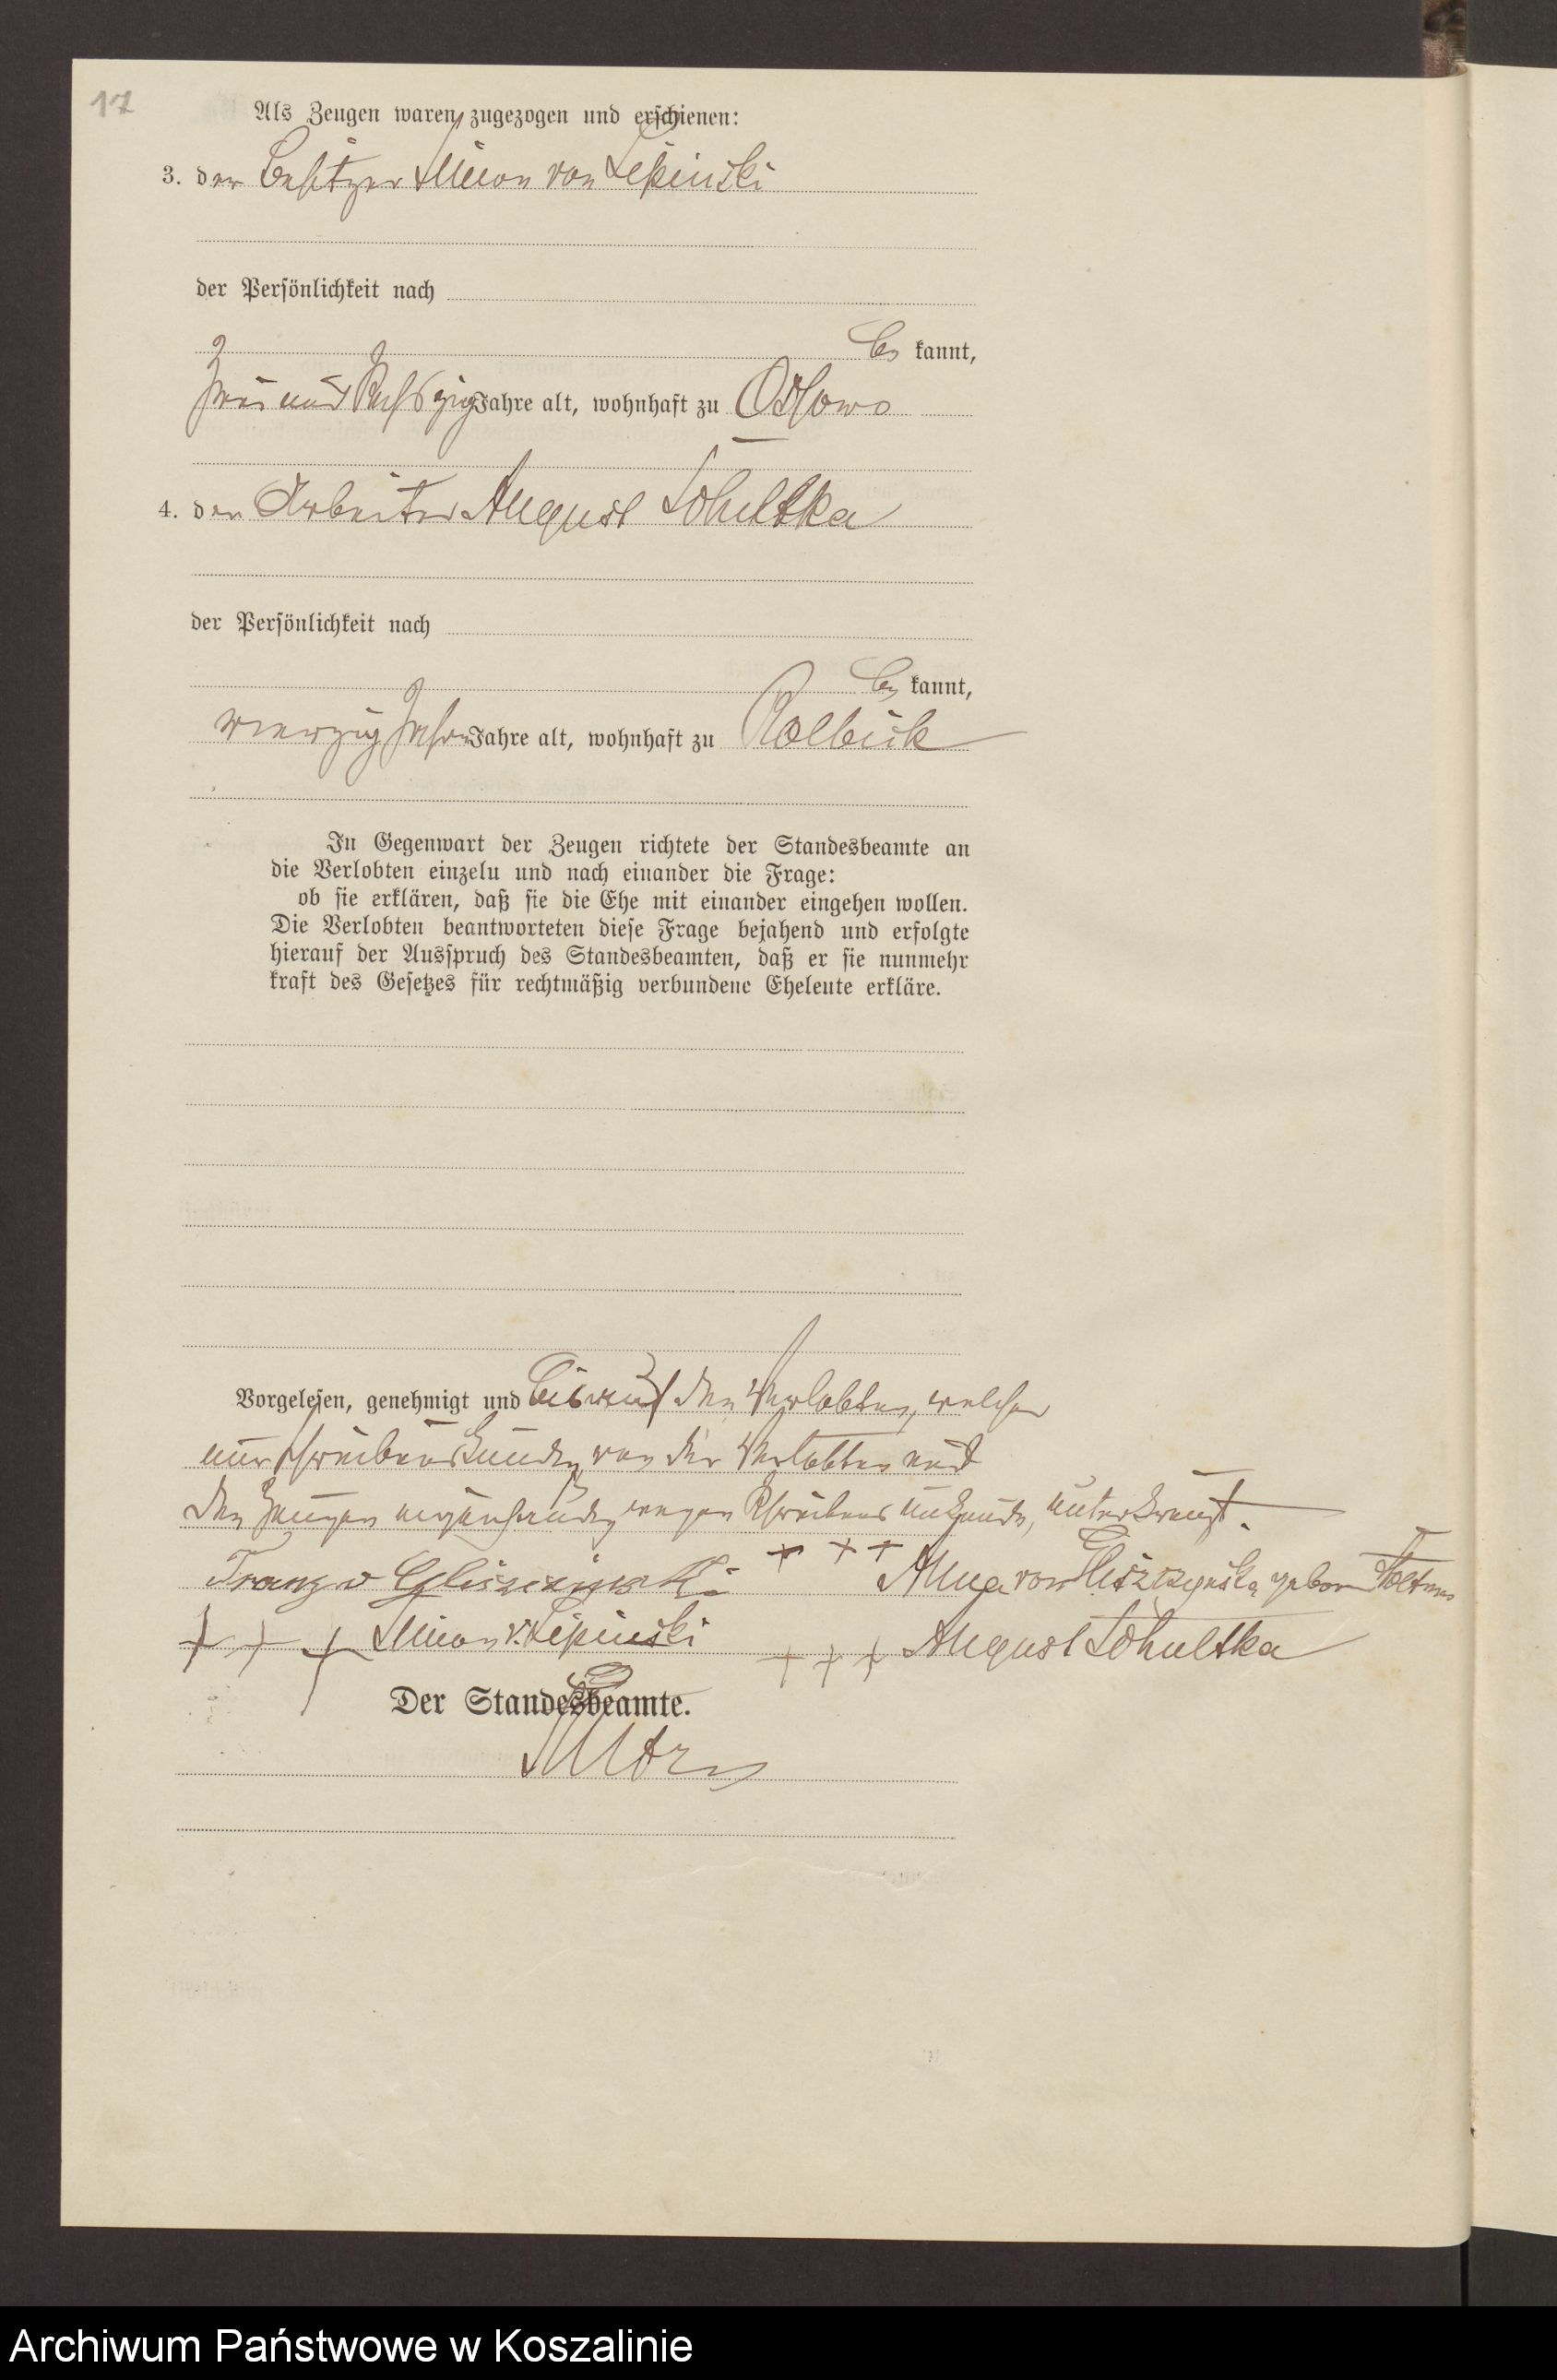 17
Als Zeugen waren zugezogen und erschienen:
3. der Besitzer Simon von Lipinski
der Persönlichkeit nach
be kannt,
zwei und sechszig Jahre alt, wohnhaft zu Ossowo
4. der Arbeiter August Schultka
der Persönlichkeit nach
be kannt,
vierzig Jahre alt, wohnhaft zu
In Gegenwart der Zeugen richtete der Standesbeamte an
die Verlobten einzeln und nach einander die Frage:
ob sie erklären, daß sie die Ehe mit einander eingehen wollen.
Die Verlobten beantworteten diese Frage bejahend und erfolgte
hierauf der Ausspruch des Standesbeamten, daß er sie nunmehr
kraft des Gesetzes für rechtmäßig verbundene Eheleute erkläre.
Vorgelesen, genehmigt und bis auf den Verlobten, welcher
nur schreibenskundig von der Verlobten und
den Zeugen wegen Schreibens unkunde, unterkreuzt.
Franz v +++ Anna von geborene
+++ Simon v. Lipinski +++ August Schultka
Der Standesbeamte.
Archiwum Państwowe w Koszalinie